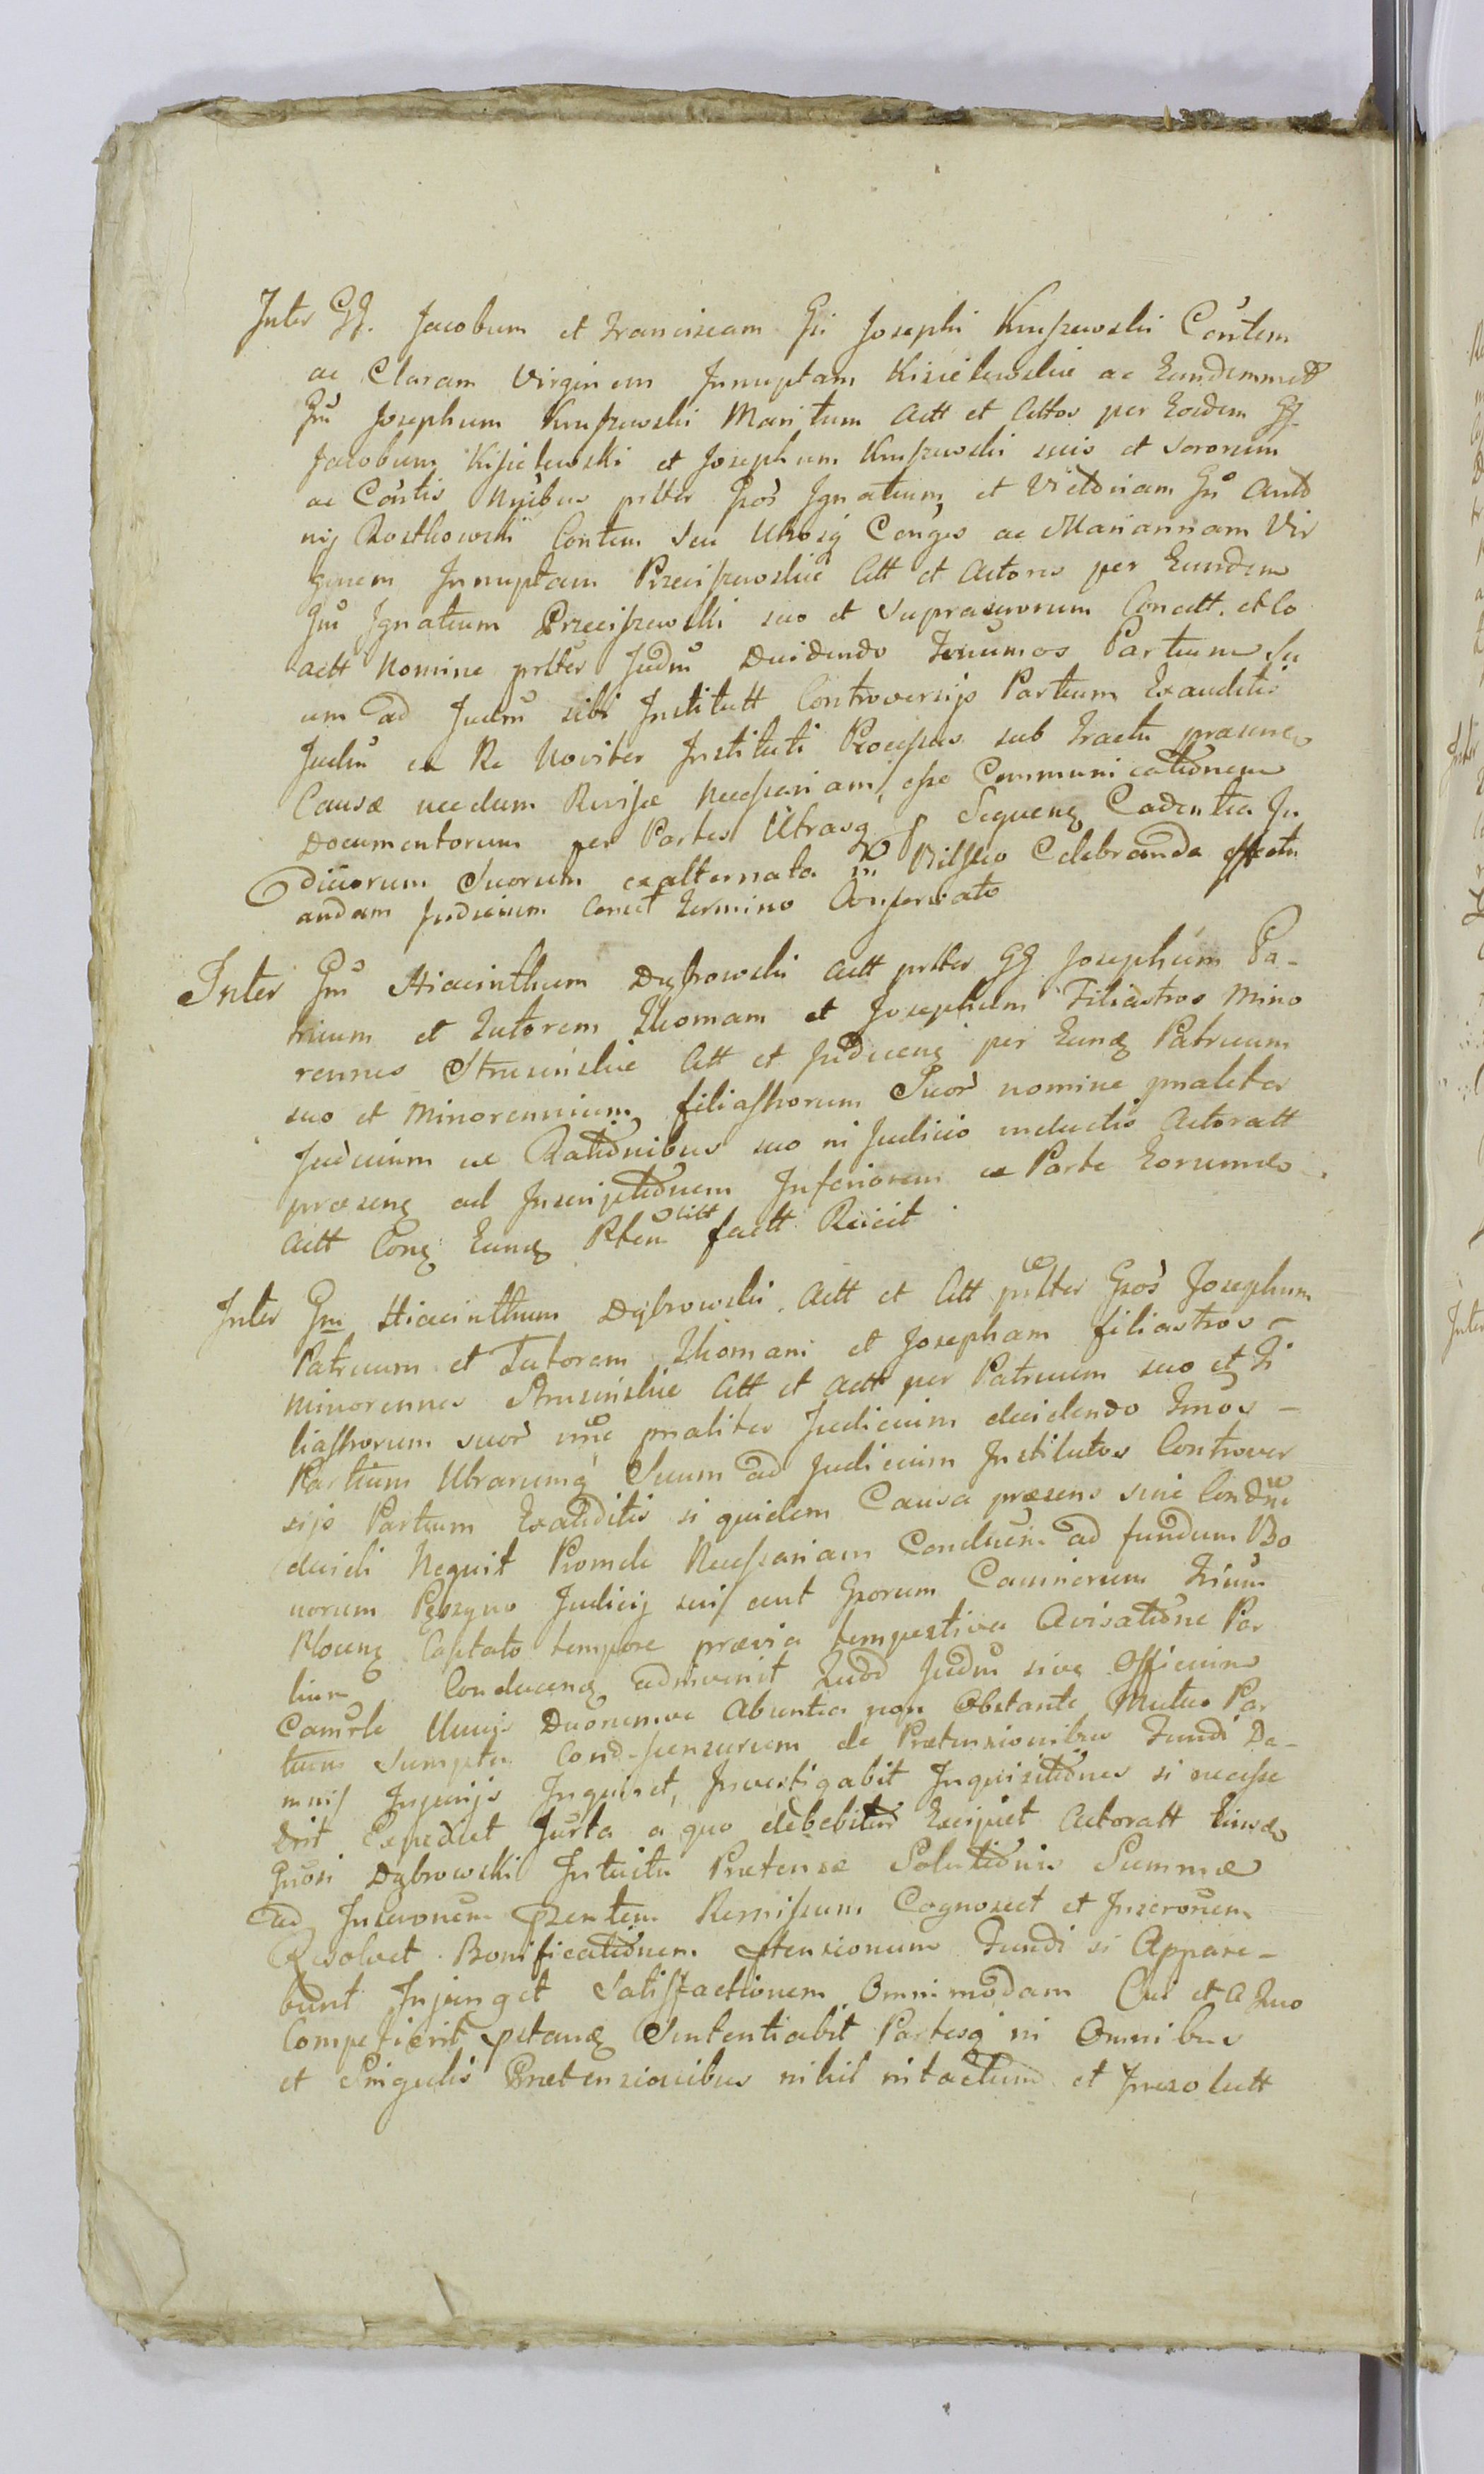 Inter GG. Jacobum et Franciscam Gsi Josephi Kruszewski Cóntem
ac Claram Virginem Innuptam Kisielewskie ac Eundemmet
Gm Josephum Kruszewski Maritum Actt et Cittos per Eosdem GG.
Jacobum Kisielewski et Josephum Kruszewski suis et Sororum
ac Cóntis Nnibus prltes Gsos Ignatium et Victoriam Gsi Anto
nij Rostkowski Contem seu Utrosq Conges ac Mariannam Vir
ginem Innuptam Przeciszewskie Citt et Actores per Eundem
Gm Ignatium Przeciszewski suo et Suprascrorum Concitt. et Co
actt Nomine prlter Judm Decidendo Terminos Partium Su
um ad Judm sibi Institutt Controversijs Partium Exauditis
Judm ex Re Noviter Instituti Processus sub Tractu praesenc
Causae necdum Revisae Necessariam esse Communicationem
Documentorum per Partes Utrasq Sequenq Cadentia Ju
diciorum Suorum exalternata in Bilsko Celebranda effectu
andam Judicium Cenct Termino Conservato
Inter Gm Hiacinthum Dąbrowski Actt prlter GG Josephum Pa-
truum et Tutorem Thomam et Josephum Filiastros Mino
rennes Strusińskie Citt et Judicenq per Eunq Patruum
suo et Minorennium filiastrorum Suor nomine pnaliter
Judicium ex Rationibus suo in Judicio inductis Actoratt
praesenq ad Inscriptionem Inferiorem ex Parte Eorumdo
Actt Conq Eunq Pten Citt factt Reiicit
Inter Gm Hiacinthum Dąbrowski Actt et Citt prlter Gsos Josephum
Patruum et Tutorem Thomam et Josepham filiastros –
Minorennes Strusińskie Citt et Actt per Patruum suo et Fi
liastrorum suor nne pnaliter Judicium decidendo Tnos –
Partium Utrarumq Suum ad Judicium Institutos Controver
sijs Partium Exauditis si quidem Causa praesens sine Condne
decidi Nequit Proinde Necessariam Conducem ad fundum Bo
norum Pęszyno Judicij sui aut Gsorum Camrorum Trium
Plocenq Captato tempore praevia tempestiva Avisatione Par
tium Conducenq adinvenit Quod Judm sive Officium
Camrle Unuis Duorumve Absentia non Obstante Mutuo Par
tium Sumptu Condescensurum de Praetensionibus Fundi Da-
mnis Injurijs Inquiret, Investigabit Inquisitiones si necesse
Erit Expediet Jurta a quo debebitur Excipiet Actoratt Eiusdo
Gnosi Dąbrowski Intuitu Praetensae Solutionis Summae
ad Inscronem pzentem Remissum Cognoscet et Inscronem
Resolvet Bonificationem ptensionum Fundi si Appare-
bunt Injunget Satisfactionem Omnimodam Cui et a Quo
Competierit, petanq Sententiabit Partesq in Omnibus
et Singulis Praetensionibus nihil intactum et Irresolutt